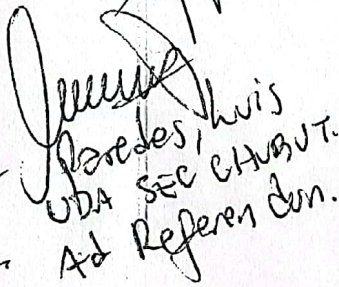 Paredes, Luis
UDA SEC CHUBUT.
Ad Referendun.